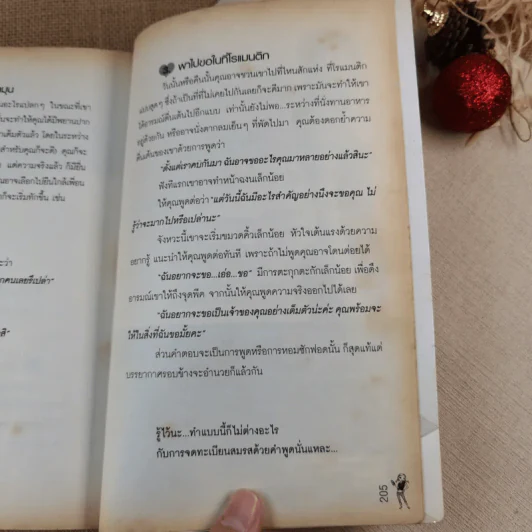 มุน
อะไรแปลกๆ ในขณะที่เขา
จะทำให้คุณได้มีพยานปาก
เต็มตัวแล้ว โดยในระหว่าง
สำหรับคุณก็จะดี คุณก็จะ
แต่ความจริงแล้ว ก็มีอื่น
อาจเลือกไปยืนใกล้เพื่อน
ก็จะเริ่มทักขึ้น เช่น
ว่า
กคนเลยรึเปล่า"
สิ"
3 พาไปขอในที่โรแมนติก
วันนั้นหรือคืนนั้นคุณอาจชวนเขาไปที่ไหนสักแห่ง ที่โรแมนติก
แบบสุดๆ ซึ่งถ้าเป็นที่ที่ไม่เคยไปกันเลยก็จะดีมาก เพราะมันจะทำให้เขา
ได้อารมณ์ตื่นเต้นไปอีกแบบ เท่านั้นยังไม่พอ...ระหว่างที่นั่งทานอาหาร
อยู่ด้วยกัน หรืออาจนั่งตากลมเย็นๆ ที่พัดไปมา คุณต้องตอกย้ำความ
ตื่นเต้นของเขาด้วยการพูดว่า
"ตั้งแต่เราคบกันมา ฉันอาจขออะไรคุณมาหลายอย่างแล้วสินะ"
ฟังทีแรกเขาอาจทำหน้าฉงนเล็กน้อย
ให้คุณพูดต่อว่า "แต่วันนี้ฉันมีอะไรสำคัญอย่างนึงจะขอคุณ ไม่
รู้ว่าจะมากไปหรือเปล่านะ"
จังหวะนี้เขาจะเริ่มขมวดคิ้วเล็กน้อย หัวใจเต้นแรงด้วยความ
อยากรู้ แนะนำให้คุณพูดต่อทันที เพราะถ้าไม่พูดคุณอาจโดนต่อยได้
"ฉันอยากจะขอ...เอ่อ...ขอ" มีการตะกุกตะกักเล็กน้อย เพื่อดึง
อารมณ์เขาให้ถึงจุดพีค จากนั้นให้คุณพูดความจริงออกไปได้เลย
"ฉันอยากจะขอเป็นเจ้าของคุณอย่างเต็มตัวน่ะค่ะ คุณพร้อมจะ
ให้ในสิ่งที่ฉันขอมั้ยคะ"
ส่วนคำตอบจะเป็นการพูดหรือการหอมซักฟอดนั้น ก็สุดแท้แต่
บรรยากาศรอบข้างจะอำนวยก็แล้วกัน
รู้ไว้นะ...ทำแบบนี้ก็ไม่ต่างอะไร
กับการจดทะเบียนสมรสด้วยคำพูดนั่นแหละ...
205